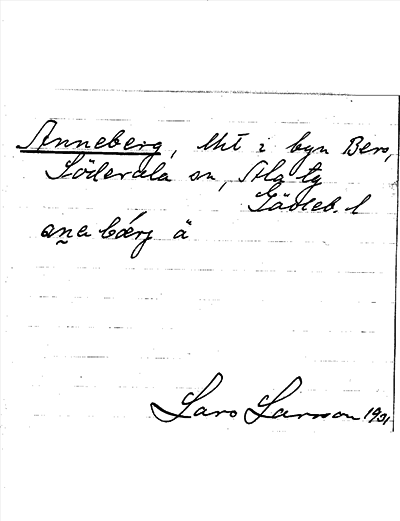 Anneberg, lht i byn Berg,
Söderala sn, Ala tg
Gävleb. l
aṇabǽrj ä
Lars Larsson 1931